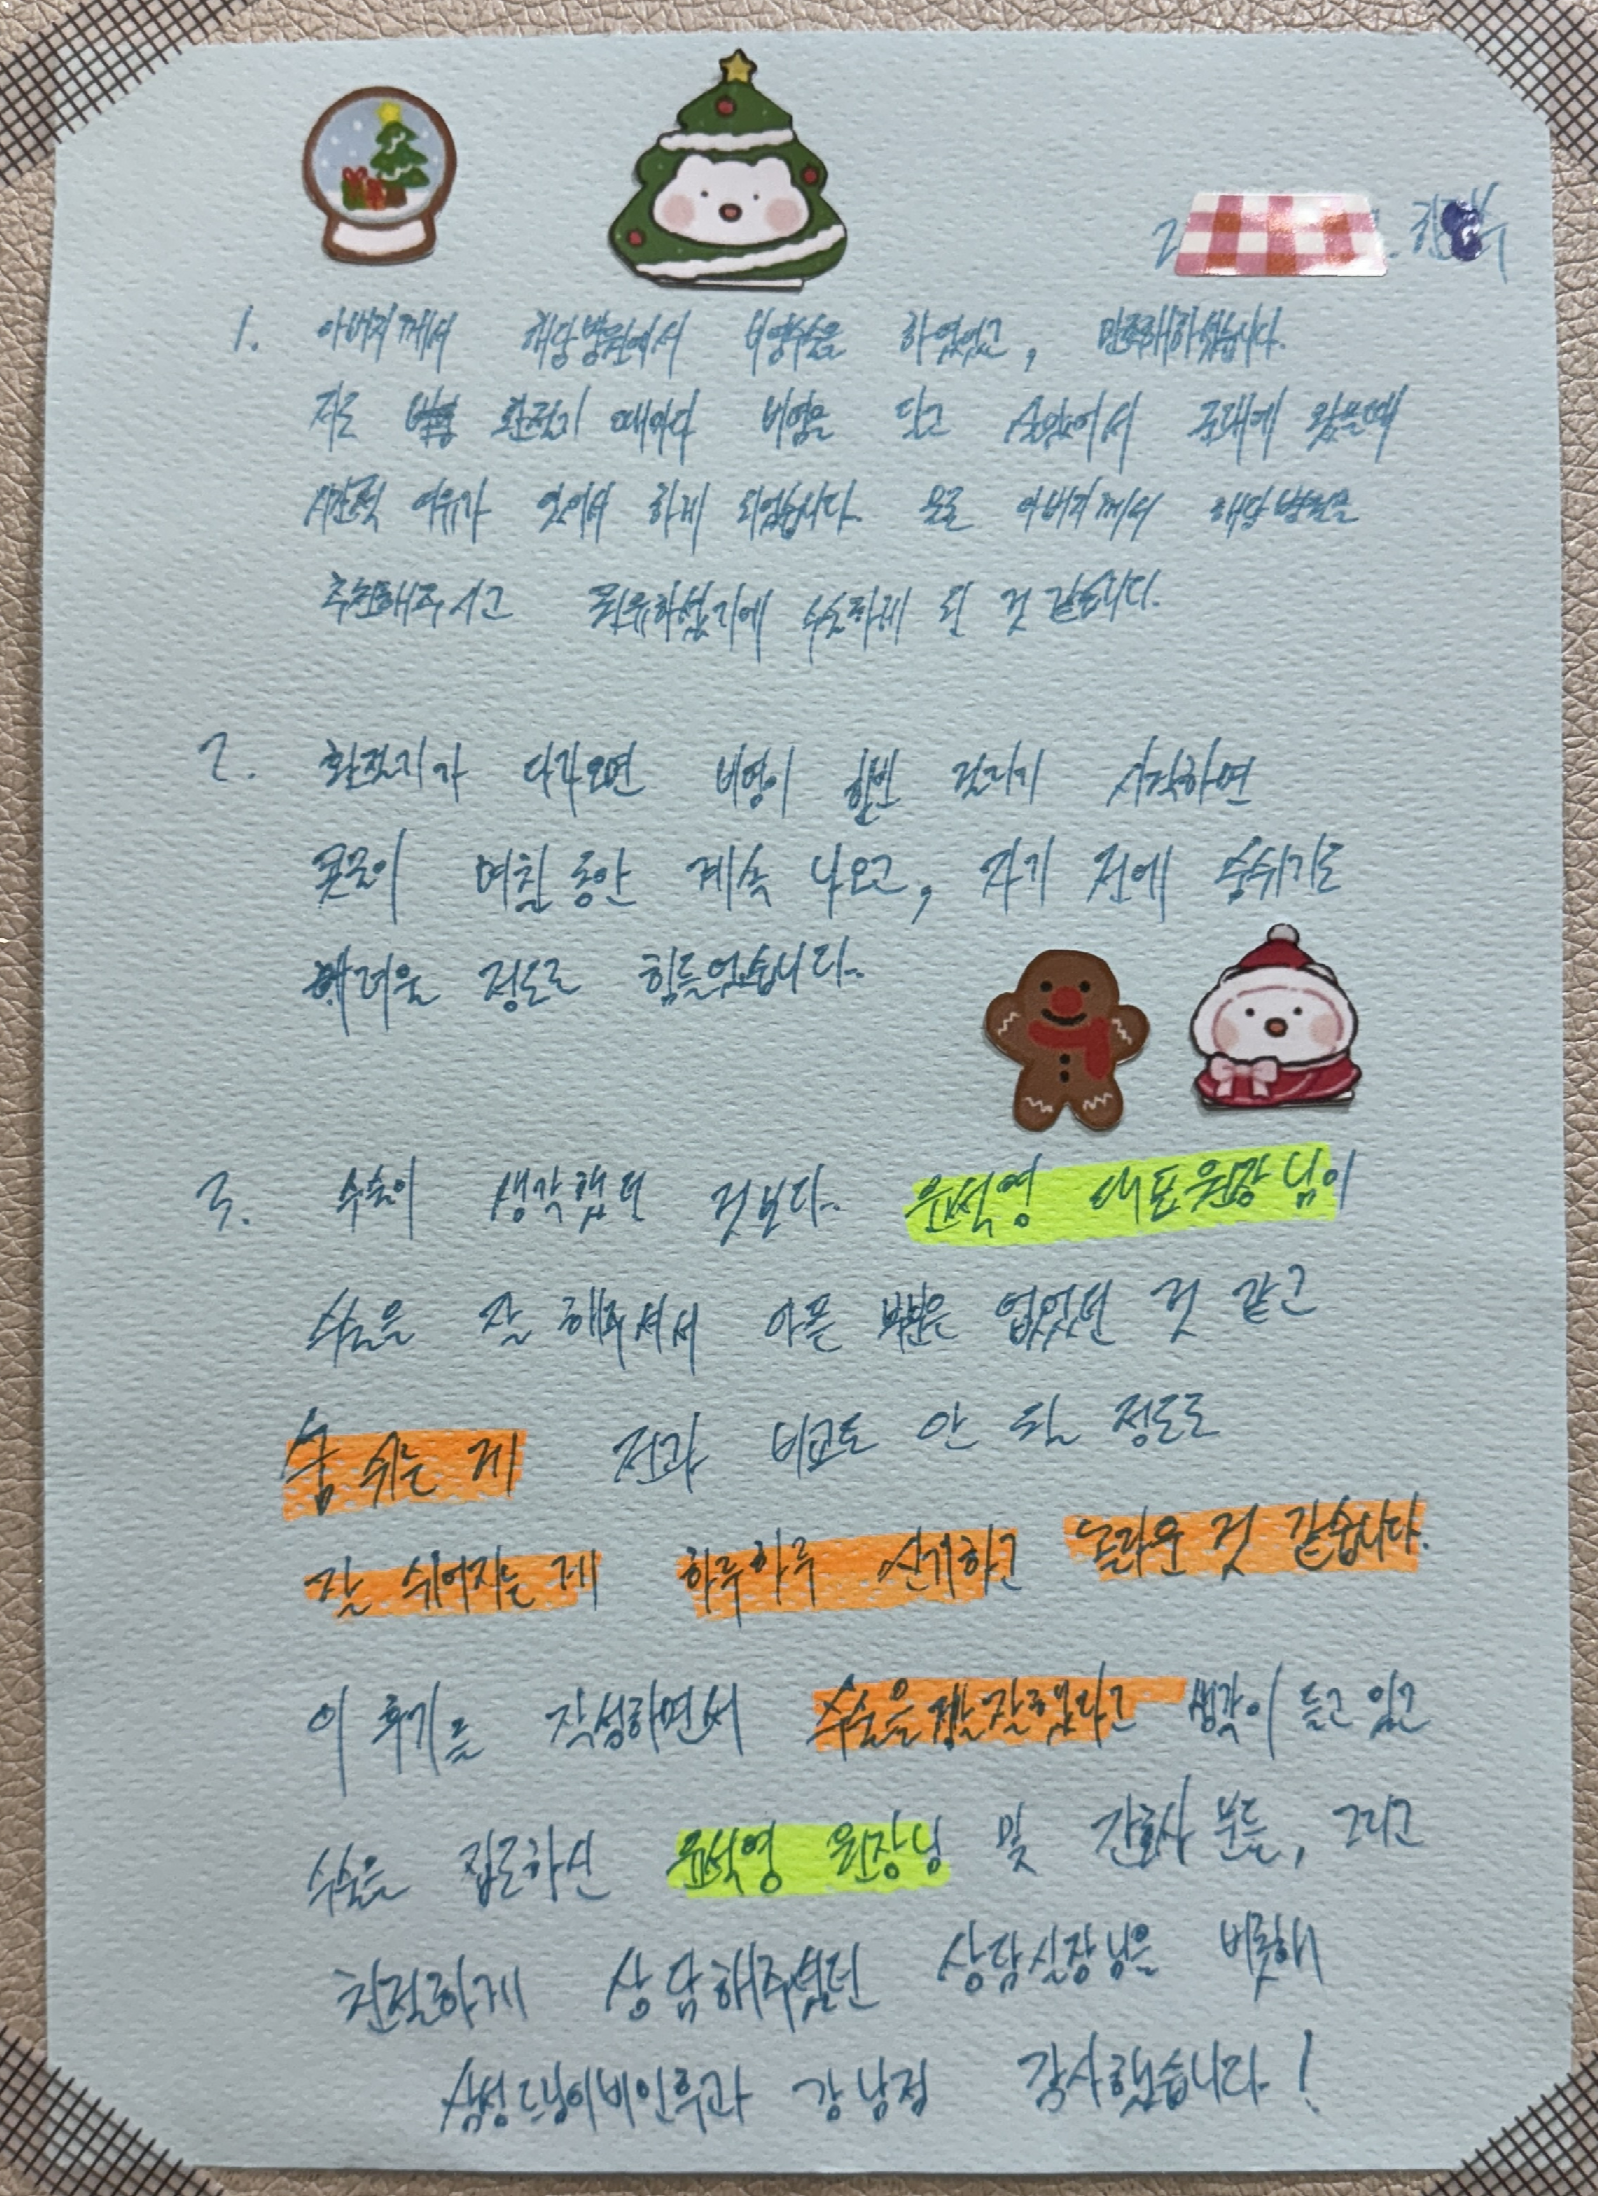 1. 아버지께서 해당병원에서 비염수술을 하였었고, 만족해하셨습니다.
저도 환절기 때마다 비염을 달고 살았어서 본래에 왔을때
시간적 여유가 있어서 하게 되었습니다. 물론 아버지께서 해당병원을
추천해주시고 권유하셨기에 수술하게 된 것 같습니다.
2. 환절기가 다가오면 비염이 한번 걸리기 시작하면
콧물이 며칠동안 계속 나오고, 자기 전에 숨쉬기도
어려울 정도로 힘들었습니다..
3. 수술이 생각했던 것보다.. 윤석영 대표원장님이
수술을 잘 해주셔서 아픈 부분은 없었던 것 같고
숨 쉬는 게 전과 비교도 안 될 정도로
잘 쉬어지는 게 하루하루 신기하고 놀라운 것 같습니다.
이 후기를 작성하면서 수술을 정말 잘했다고 생각이 들고 있고
수술을 집도하신 윤석영 원장님 및 간호사 분들, 그리고
친절하게 상담해주셨던 상담실장님을 비롯해
삼성드림이비인후과 강남점 감사했습니다!